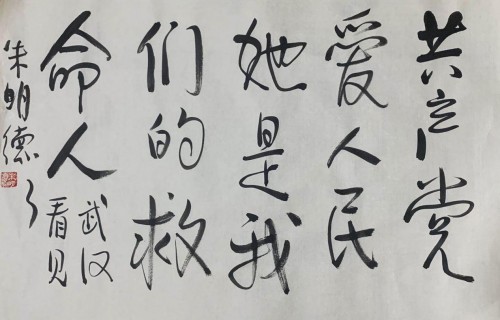 共产党
愛人民
她是我
们的救
命人
武汉
看见
朱明德